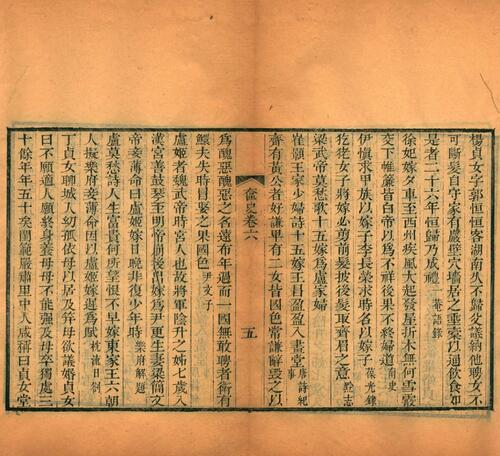 楊貞女之郭恒恒客湖南久不歸父議納他聘女不
可斷髮自守家有嚴壁穴牆居之垂索以通飲食如
是者二十六年恒歸乃成禮 菴語錄
徐妃嫁夕車至西州疾風大起發屋折木無何雪霰
交下帷簾皆白帝以為不祥後果不終婦道 南史
伊慎求甲族以嫁子李長榮求時名以嫁子 葆光錄
犵狫女子將嫁必剪前髮披後髮取齊眉之意 黔志
梁武帝莫愁歌十五嫁為盧家婦
崔顥王家少婦詩十五嫁王昌盈盈入畫堂 唐詩紀事
齊有黃公者好謙卑有二女皆國色常謙辭毀之以
奩史卷六
五
為醜惡醜惡之名遠布年過而一國無敢聘者衛有
鰥夫失時冒娶之果國色 尹文子
盧姬者魏武帝時宮人也故將軍陰升之姊七歲入
漢宮善鼓琴至明帝崩後出嫁為尹更生妻梁簡文
帝妾薄命曰盧姬嫁日晚非復少年時 樂府解題
盧莫愁詩人生富貴何所望恨不早嫁東家王六朝
人擬樂府妾薄命因以盧姬嫁遲為賦 枕流日劄
丁貞女聊城人幼孤依母以居及笄母欲議婚貞女
曰不願適人願終身養母母不能強及母卒獨處三
十餘年年五十矣閨範嚴肅里中人咸稱曰貞女堂